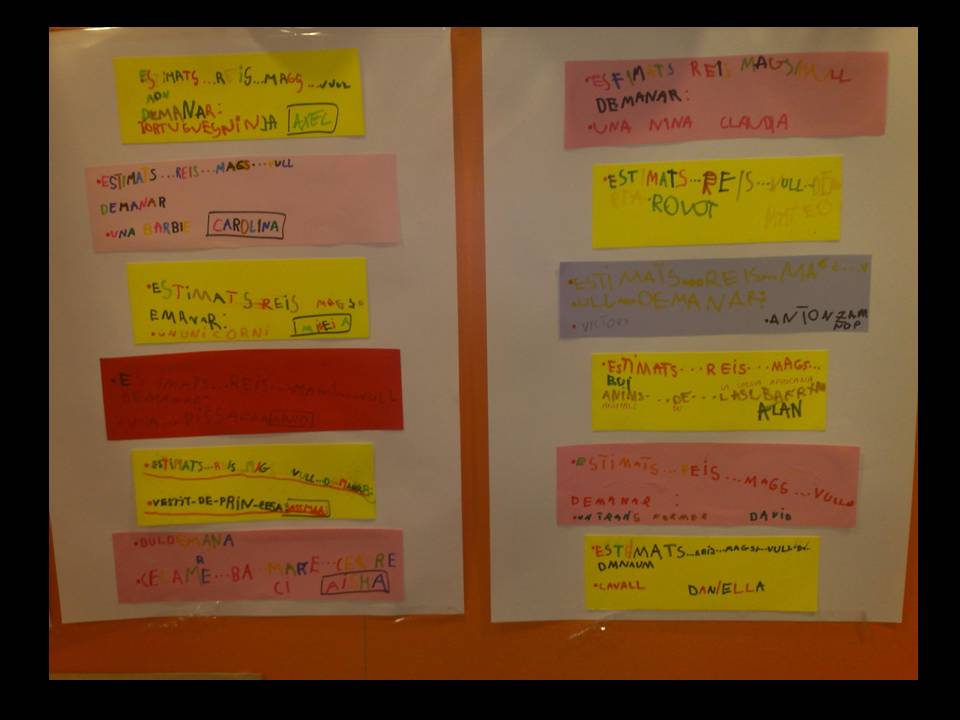 ESTIMATS...REIS...MAGS...VULL
DEMANAR:
TORTUGUESNINJA AXEL
•ESTIMATS...REIS...MAGS...VULL
DEMANAR
•UNA BARBIE CAROLINA
•ESTIMATS-REIS MAGS
EMANAR:
•UNUNICORNI MIREIA
•ESTIMATS...REIS...MAGS...VULL
DEMANAR
UNA
•ESTIMATS...REIS...MIG VULL...D...MANAR:
•VESTIT-DE-PRIN-CESA
•BULDEMANA
R
•CELAME...BA MARE...CERRE
CI AISHA
•ESFIMATS REIS MAGS/VULL
DEMANAR:
•UNA NINA CLAUDIA
•ESTIMATS...REIS...VULL-DEM
ROVOT MATEO
•ESTIMATS...REIS...MAGS...V
ULL...DEMANAR:
•VICTOR •ANTONZAM
•ESTIMATS...REIS...MAGS...
BUI
ANIMS...DE...
ALAN
•ESTIMATS...REIS...MAGS...VULL
DEMANAR :
•UN TRANS FORMER DAVID
•ESTIMATS...REIS...MAGS...VULL.DI.
DMNAUM
•CAVALL DANIELLA